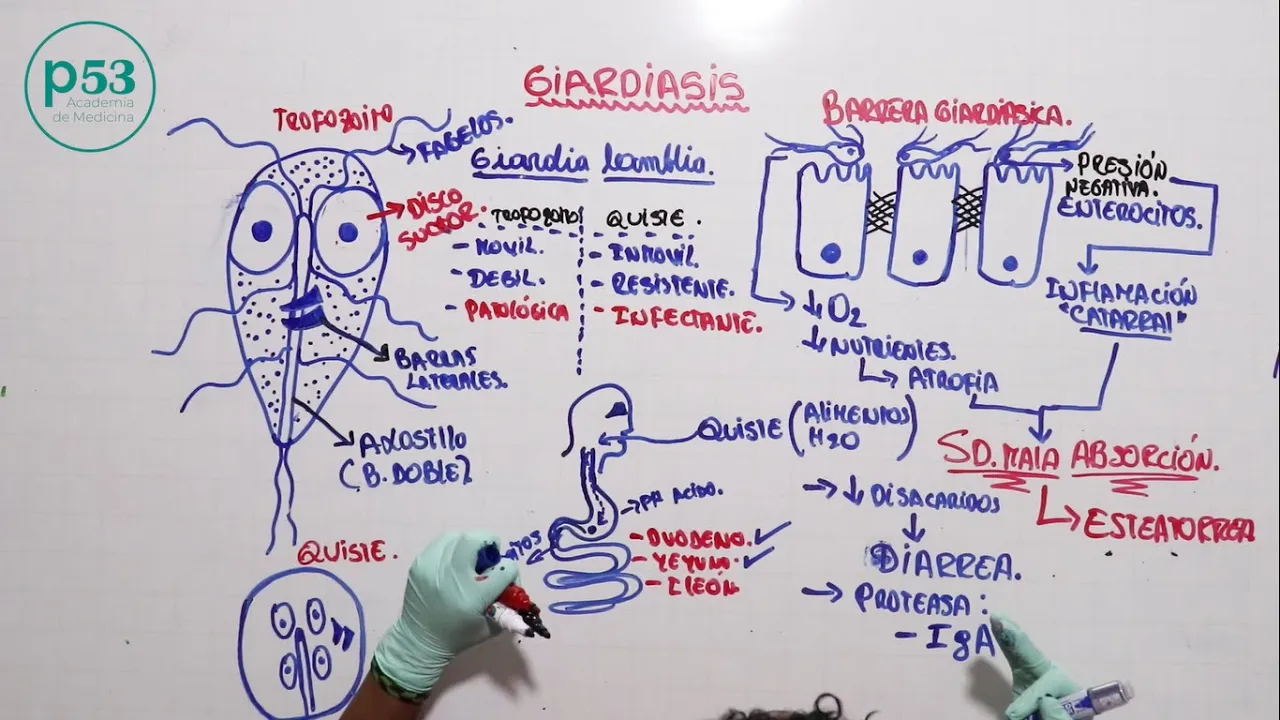 p53
Academia
de Medicina
GIARDIASIS
TROFOZOITO
FAGELOS.
DISCO
SUCTOR.
BARRAS
LATERALES.
AXOSTILLO
(B. DOBLE)
QUISTE.
Giardia Lamblia.
TROFOZOITO
- MOVIL.
- DEBIL.
- PATOLÓGICA
QUISTE.
- INMOVIL.
- RESISTENTE.
- INFECTANTE.
QUISTE (ALIMENTOS
H2O)
PH ACIDO.
- DUODENO. ✓
- YEYUNO. ✓
- ILEÓN
BARRERA GIARDIASICA.
PRESIÓN
NEGATIVA.
ENTEROCITOS.
INFLAMACIÓN
"CATARRAL"
↓ O2
↓ NUTRIENTES.
ATROFIA
SD. MALA ABSORCIÓN.
ESTEATORREA
→ ↓ DISACARIDOS
↓
DIARREA.
→ PROTEASA:
- IgA